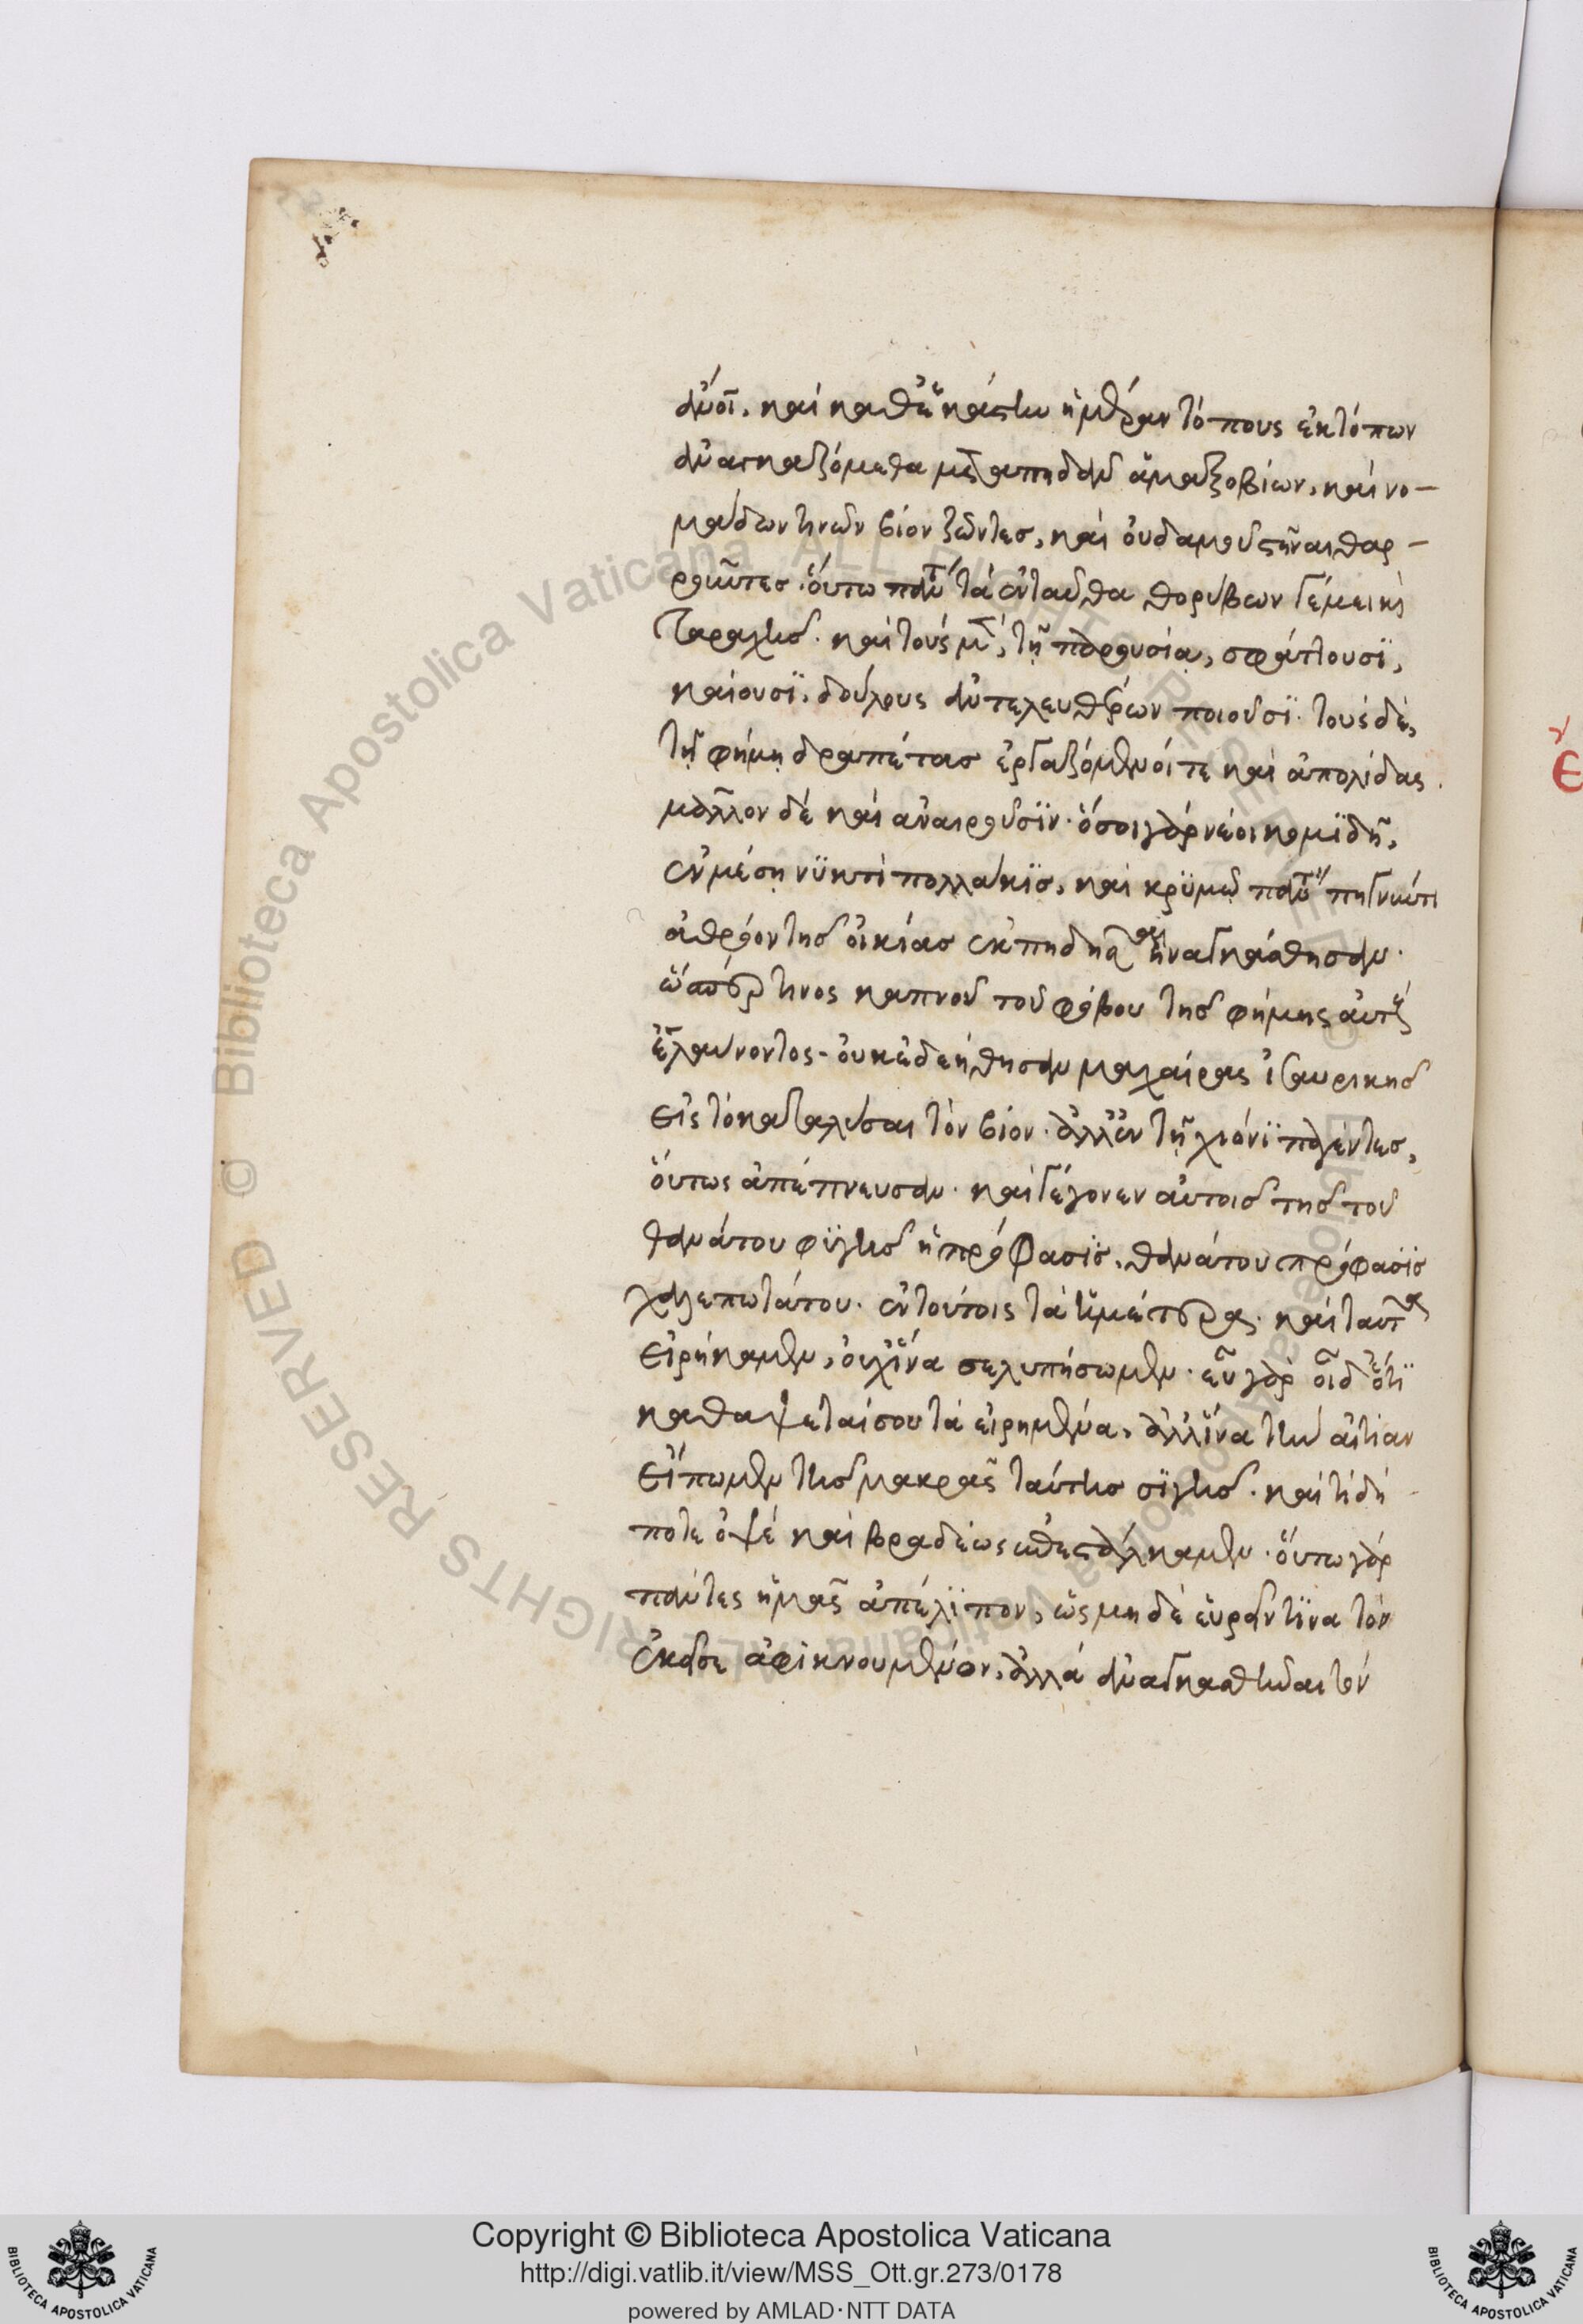 ἄνοι. καὶ καθ' ἑκάστην ἡμέραν τόπους ἐκ τόπων
ἀνασκαζόμεθα μεταπηδᾶν ἁμαξοβίων, καὶ νο-
μάδων τινῶν βίον ζῶντες, καὶ οὐδαμοῦ στῆναι θαρ-
ροῦντες. οὕτω πάντα τὰ ἐνταῦθα θορύβων γέμει κὶ
ταραχῆς. καὶ τοὺς μὲν, τῇ παρουσία, σφάττουσϊ,
καίουσϊ. δούλους ἀντελευθέρων ποιοῦσϊ. τοὺς δὲ,
τῇ φήμῃ δραπέτας ἐργαζόμενοί τε καὶ ἀπολίδας.
μᾶλλον δὲ καὶ ἀναιροῦσϊν. ὅσοι γὰρ νέοι κομϊδῇ,
ἐν μέσῃ νϋκτὶ πολλάκϊς, καὶ κρϋμῷ πάντα πηγνύντι
ἀθρόον τῆς οἰκίας ἐκπηδῆσαι ἠναγκάσθησαν.
ὥσπερ τινος καπνοῦ τοῦ φόβου τῆς φήμης αὐτοὺς
ἐλαύνοντος. οὐκ ἐδεήθησαν μαχαίρας ἰσαυρικῆς
εἰς τὸ καταλῦσαι τὸν βίον. ἀλλ' ἐν τῇ χιόνϊ παγέντες,
οὕτως ἀπέπνευσαν. καὶ γέγονεν αὐτοῖς τῆς τοῦ
θανάτου φϋγῆς ἡ πρόφασϊς, θανάτου πρόφασϊς
χαλεπωτάτου. ἐν τούτοις τὰ ἡμέτερα. καὶ ταῦτα
εἰρήκαμεν, οὐχ ἵνα σε λυπήσωμεν. εὖ γὰρ οἶδ' ὅτϊ
καθάψεταί σου τὰ εἰρημένα, ἀλλ' ἵνα τὴν αἰτίαν
εἴπωμεν τῆς μακρᾶς ταύτης σϊγῆς. καὶ τί δή
ποτε ὀψὲ καὶ βραδέως ἐπεστάλκαμεν. οὕτω γὰρ
πάντες ἡμᾶς ἀπέλϊπον, ὡς μηδὲ εὑρεῖν τϊνα τὸν
ἐκεῖσε ἀφικνουμένον, ἀλλὰ ἀναγκασθῆναι τὸν
Copyright © Biblioteca Apostolica Vaticana
http://digi.vatlib.it/view/MSS_Ott.gr.273/0178
powered by AMLAD·NTT DATA